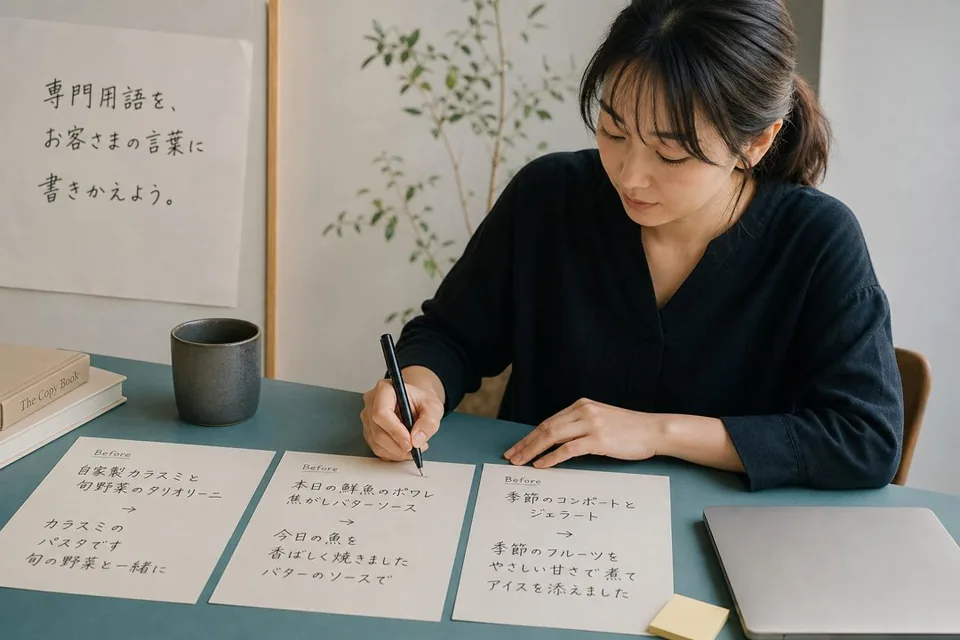 専門用語を、
お客さまの言葉に
書きかえよう。
The Copy Book
Before
自家製カラスミと
旬野菜のタリオリーニ
→
カラスミの
パスタです
旬の野菜と一緒に
Before
本日の鮮魚のポワレ
焦がしバターソース
→
今日の魚を
香ばしく焼きました
バターのソースで
Before
季節のコンポートと
ジェラート
→
季節のフルーツを
やさしい甘さで煮て
アイスを添えました